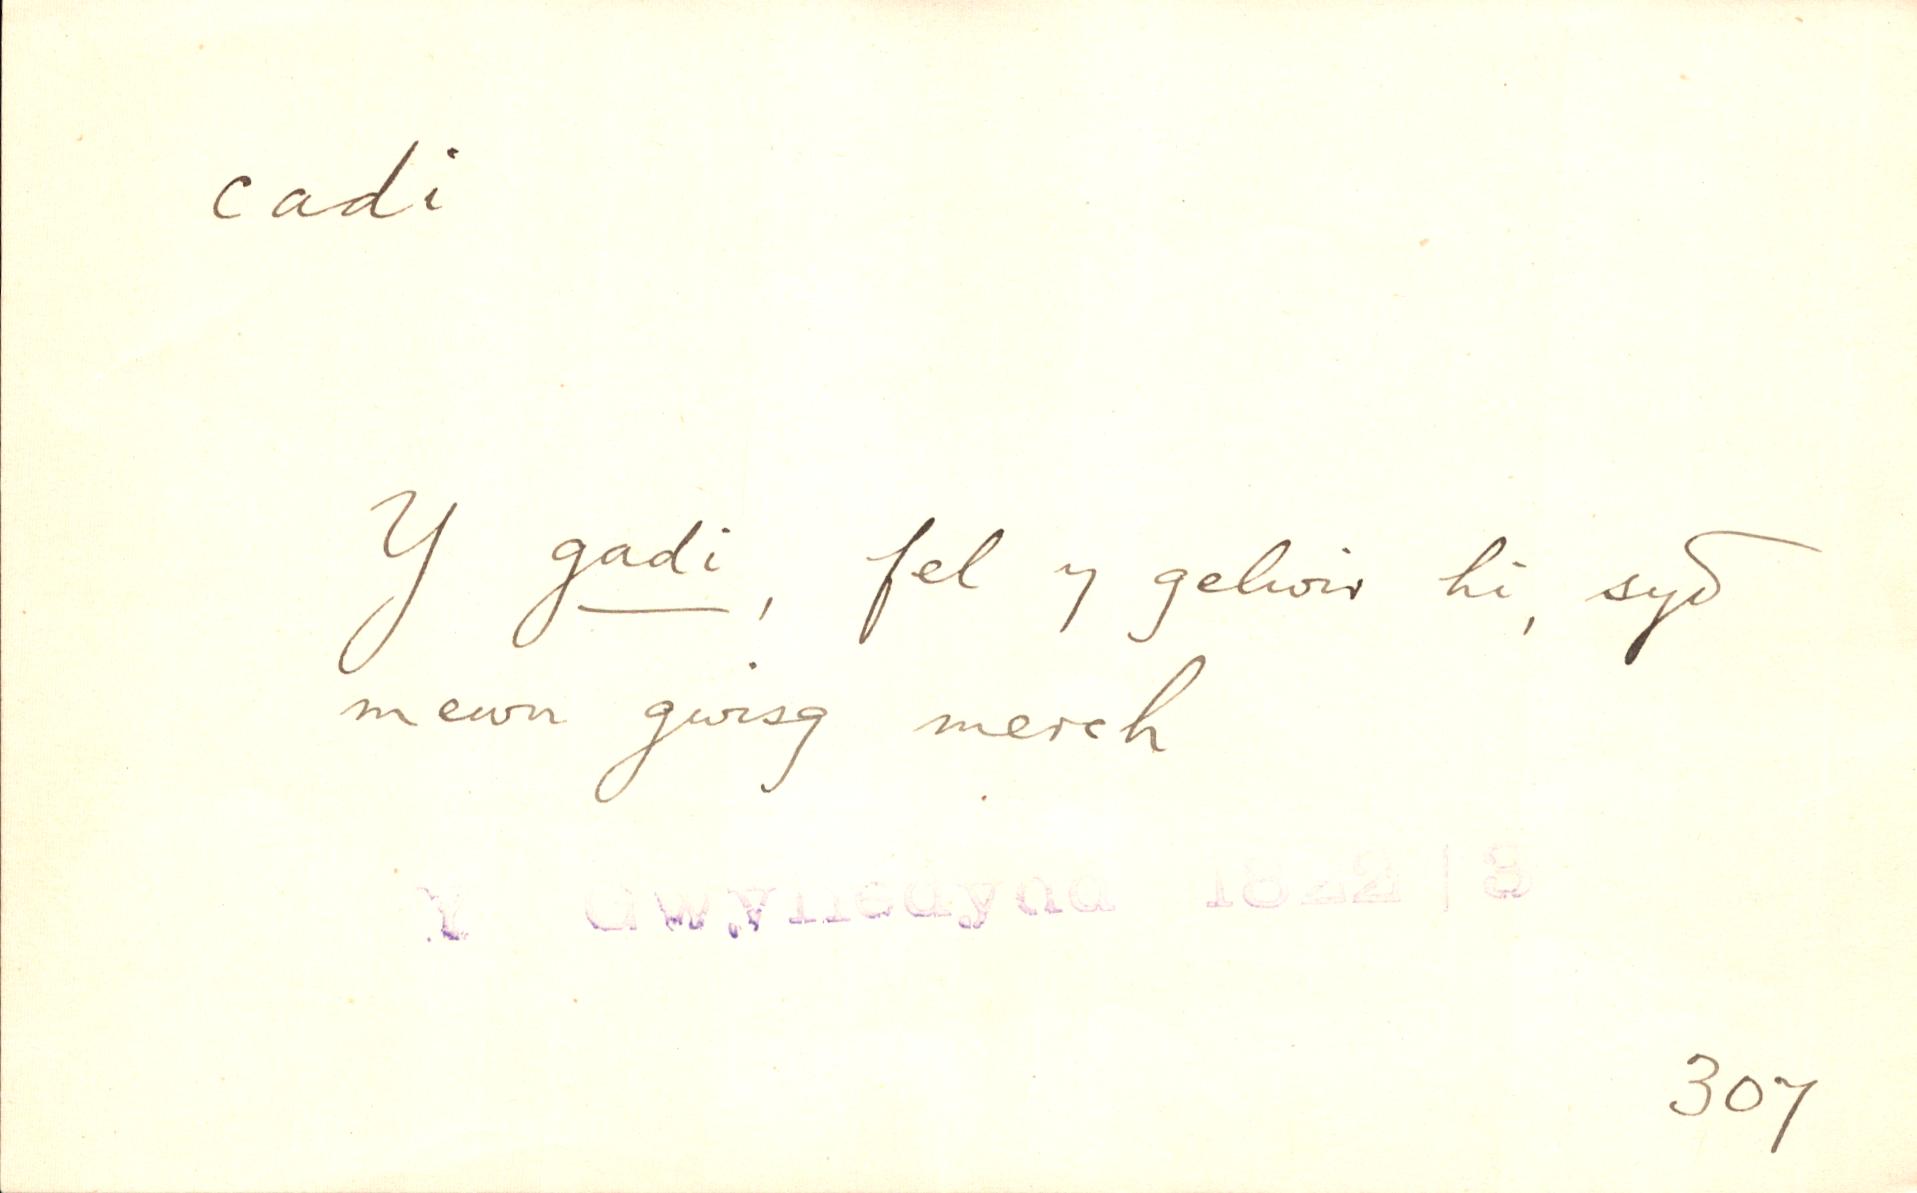 cadi
Y gadi, fel y gelwir hi, syδ
mewn gwisg merch
Y Gwyneddyn 1822|3
307